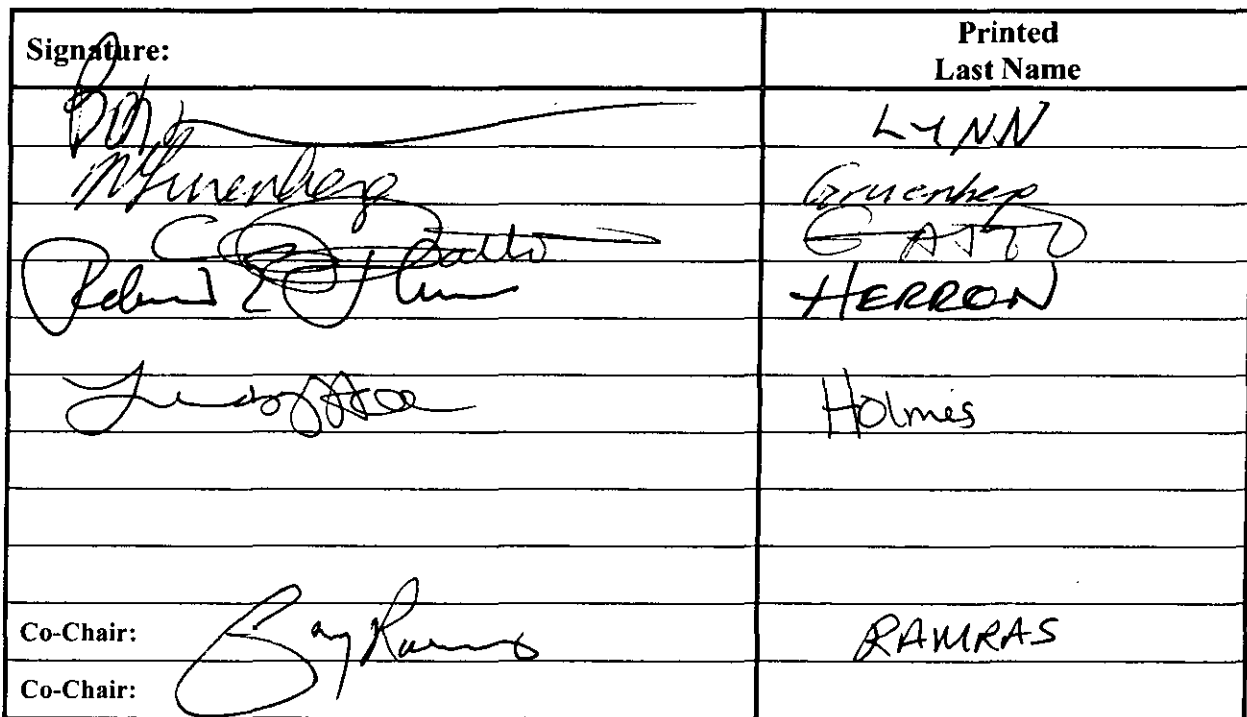 Signature: Printed
Last Name
Bob LYNN
M Gruenberg Gruenberg
C Gatto GATTO
HERRON
Holmes
Co-Chair: Jay Ramras RAMRAS
Co-Chair: